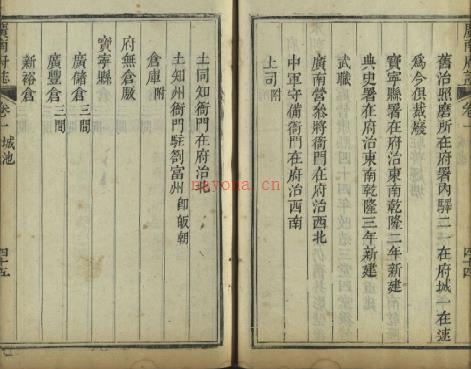 舊治照磨所在府署內驛二一在府城一在速
爲今俱裁廢
寶寧縣署在府治東南乾隆二年新建
典史署在府治東南乾隆三年新建
武職
廣南營叅將衙門在府治西北
中軍守備衙門在府治西南
土司附
土同知衙門在府治北
土知州衙門駐剝富州卽皈朝
倉庫附
府無倉廒
寶寧縣
廣儲倉三間
廣豐倉三間
新裕倉
廣南府志
卷二
城池
四十五
nayona.cn